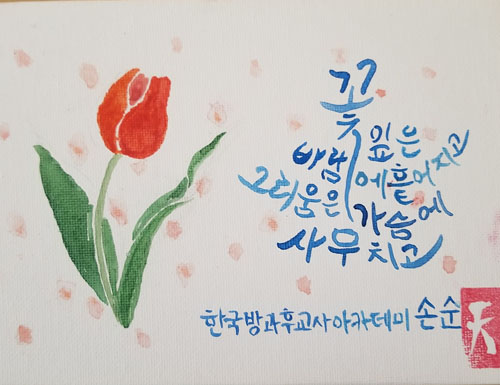 꽃
잎은
바람에 흩어지고
그리움은 가슴에
사무치고
한국방과후교사아카데미 손순